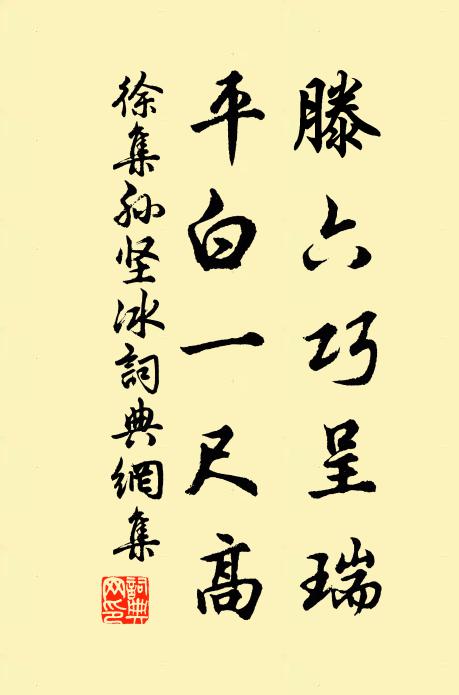 滕六巧呈瑞
平白一尺高
徐集孙坚冰詞典網集
詞典网印